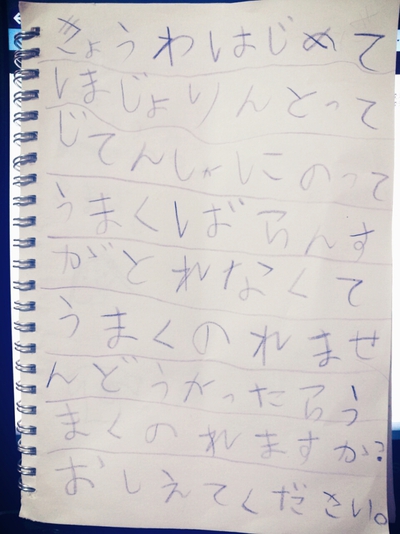 きょうわはじめて
ほじょりんとって
じてんしゃにのって
うまくばらんす
がとれなくて
うまくのれませ
んどうやったらう
まくのれますか?
おしえてください。